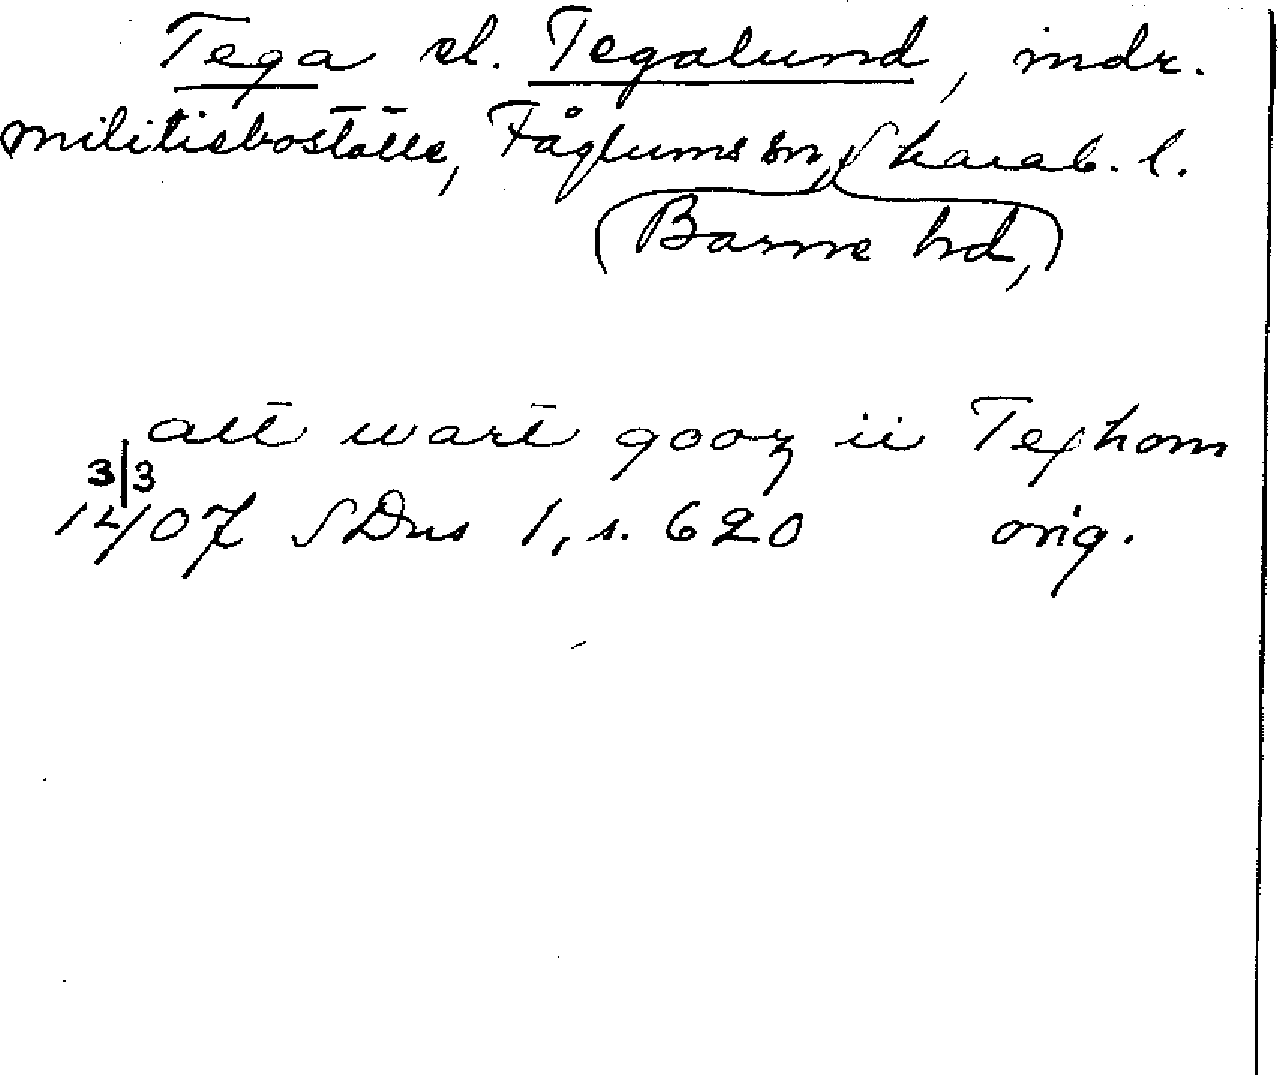 Tega el. Tegalund, indr.
militieboställe, Fåglums sn, Skarab. l.
(Barne hd,)
alt wart gooz ii Teghom
3/3
14/07 SDns 1, s. 620 orig.